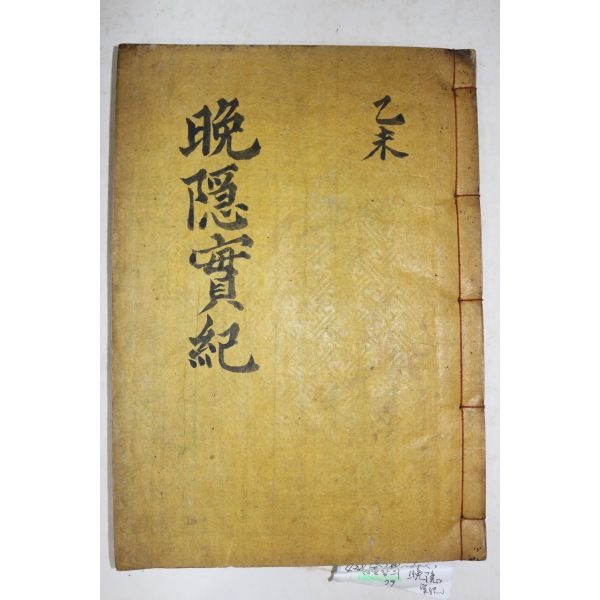 乙未
晩隠實紀